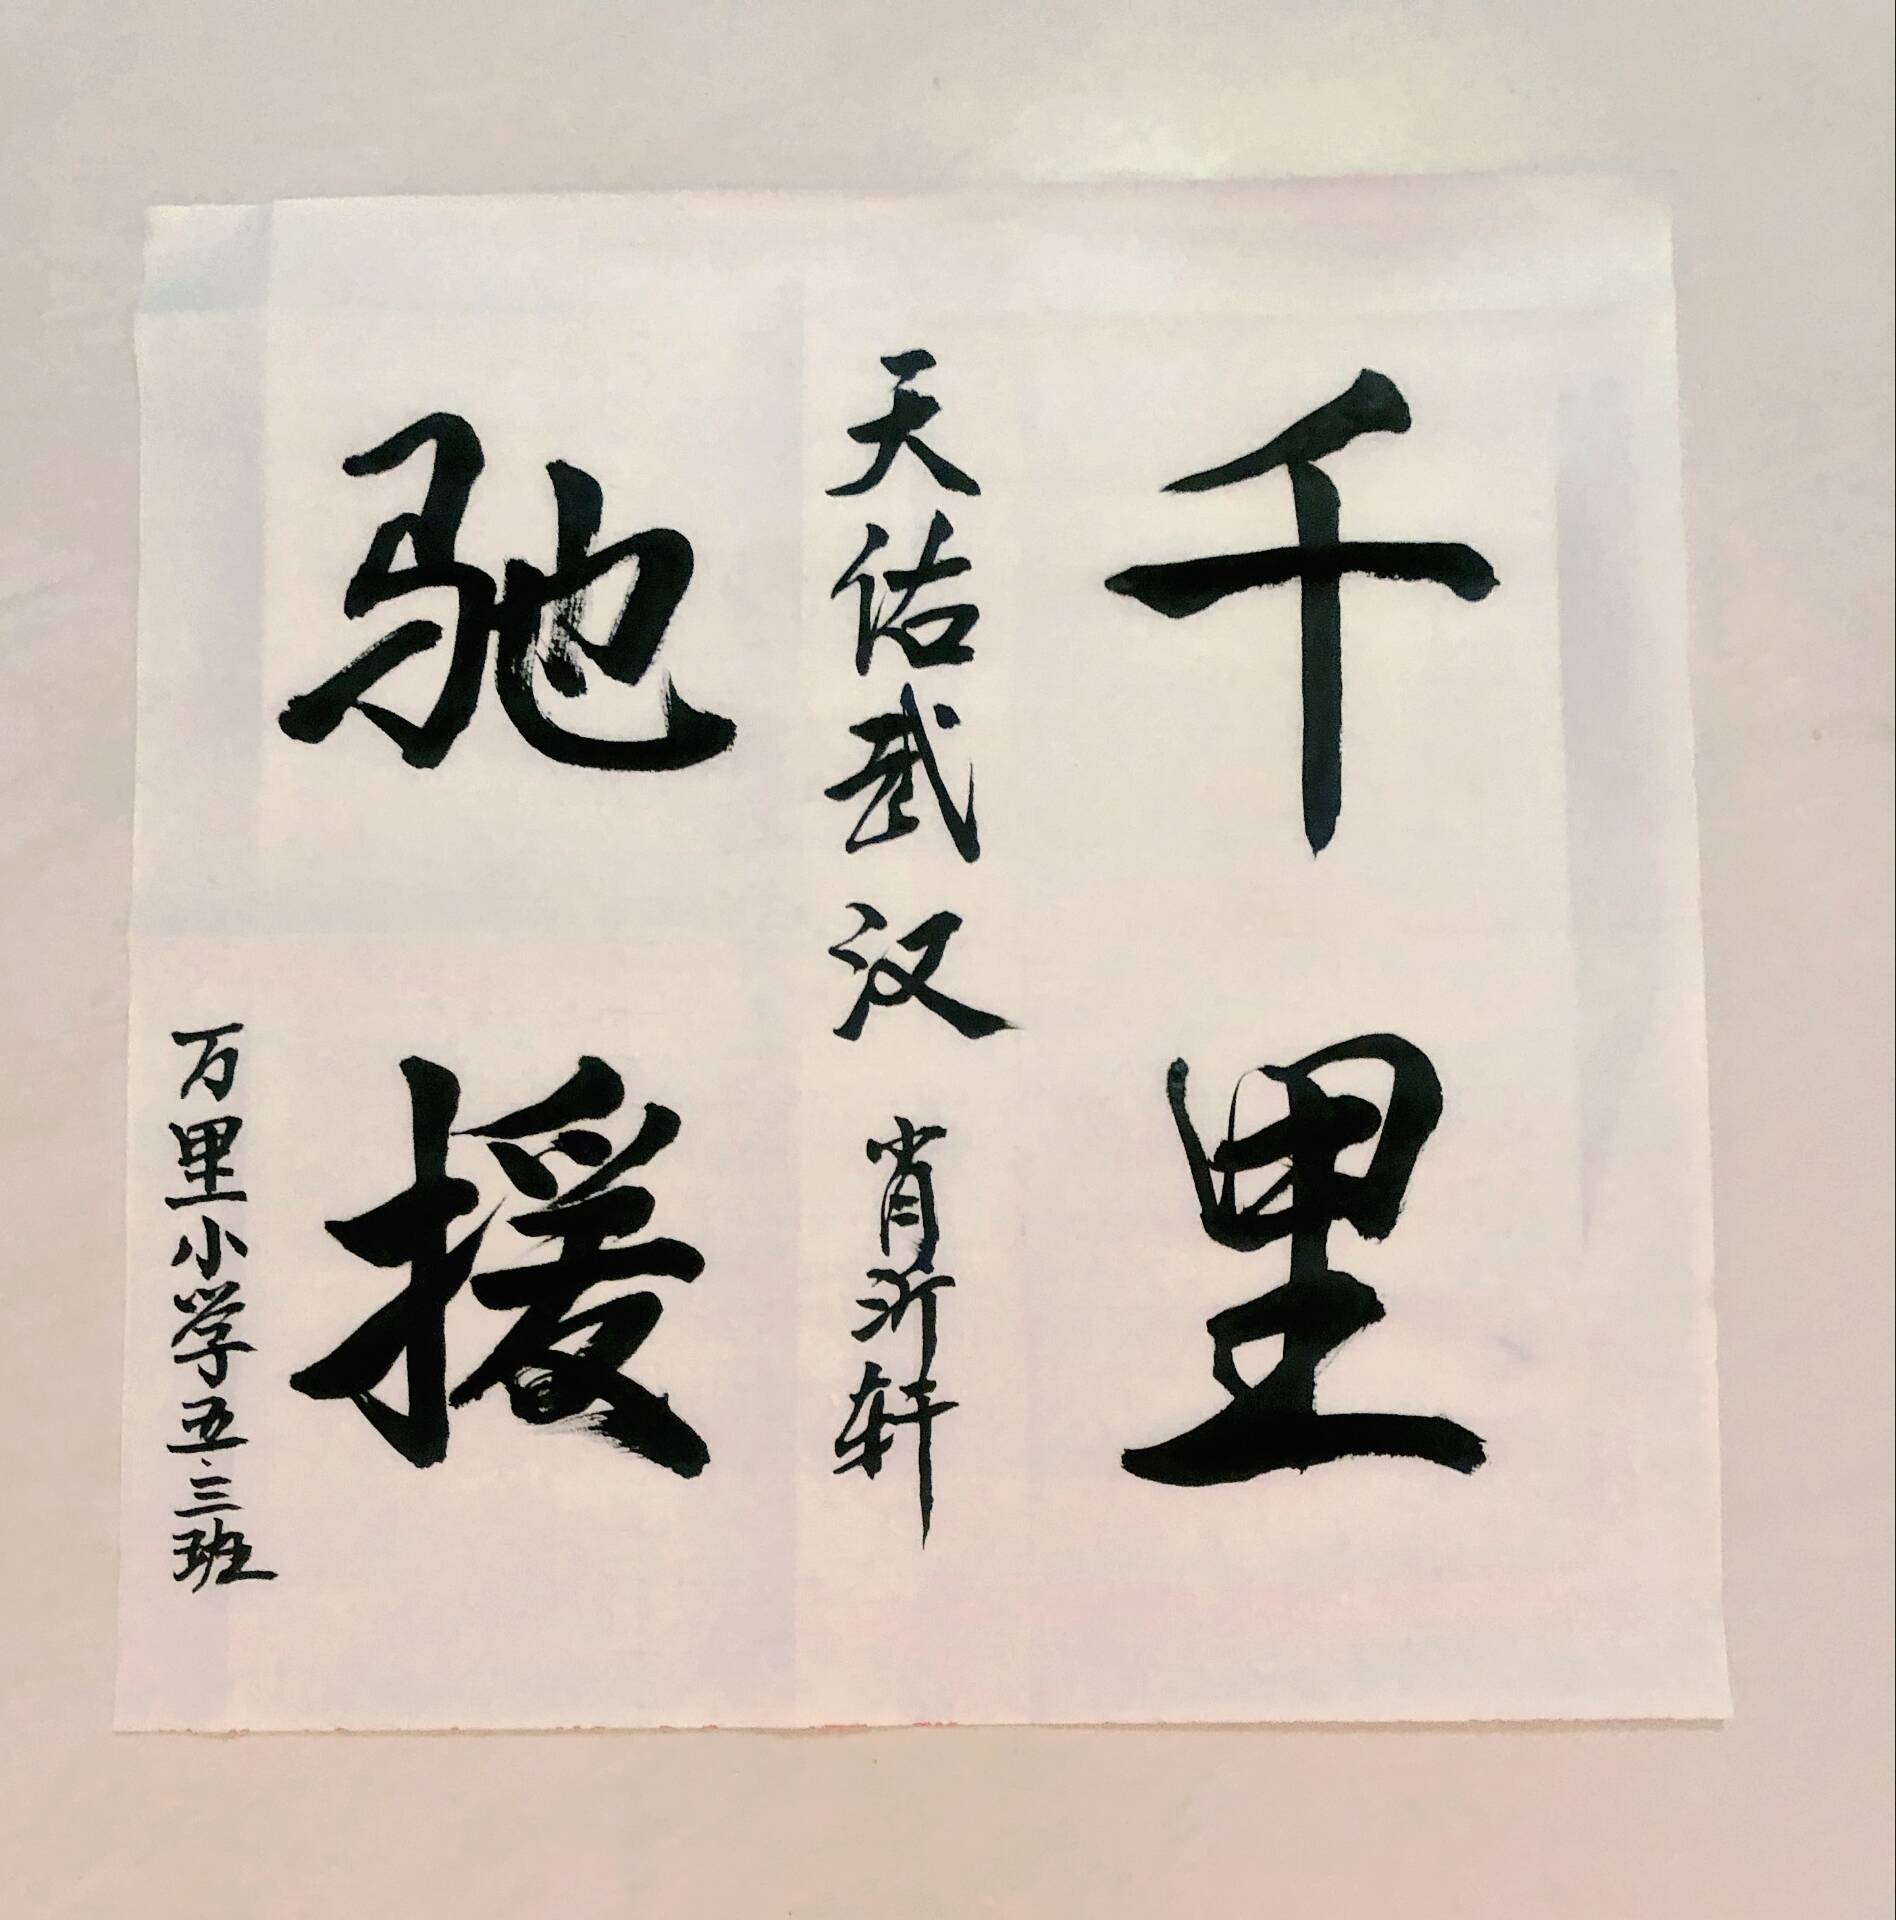 千里
天佑武汉 肖沂轩
驰援
万里小学五.三班